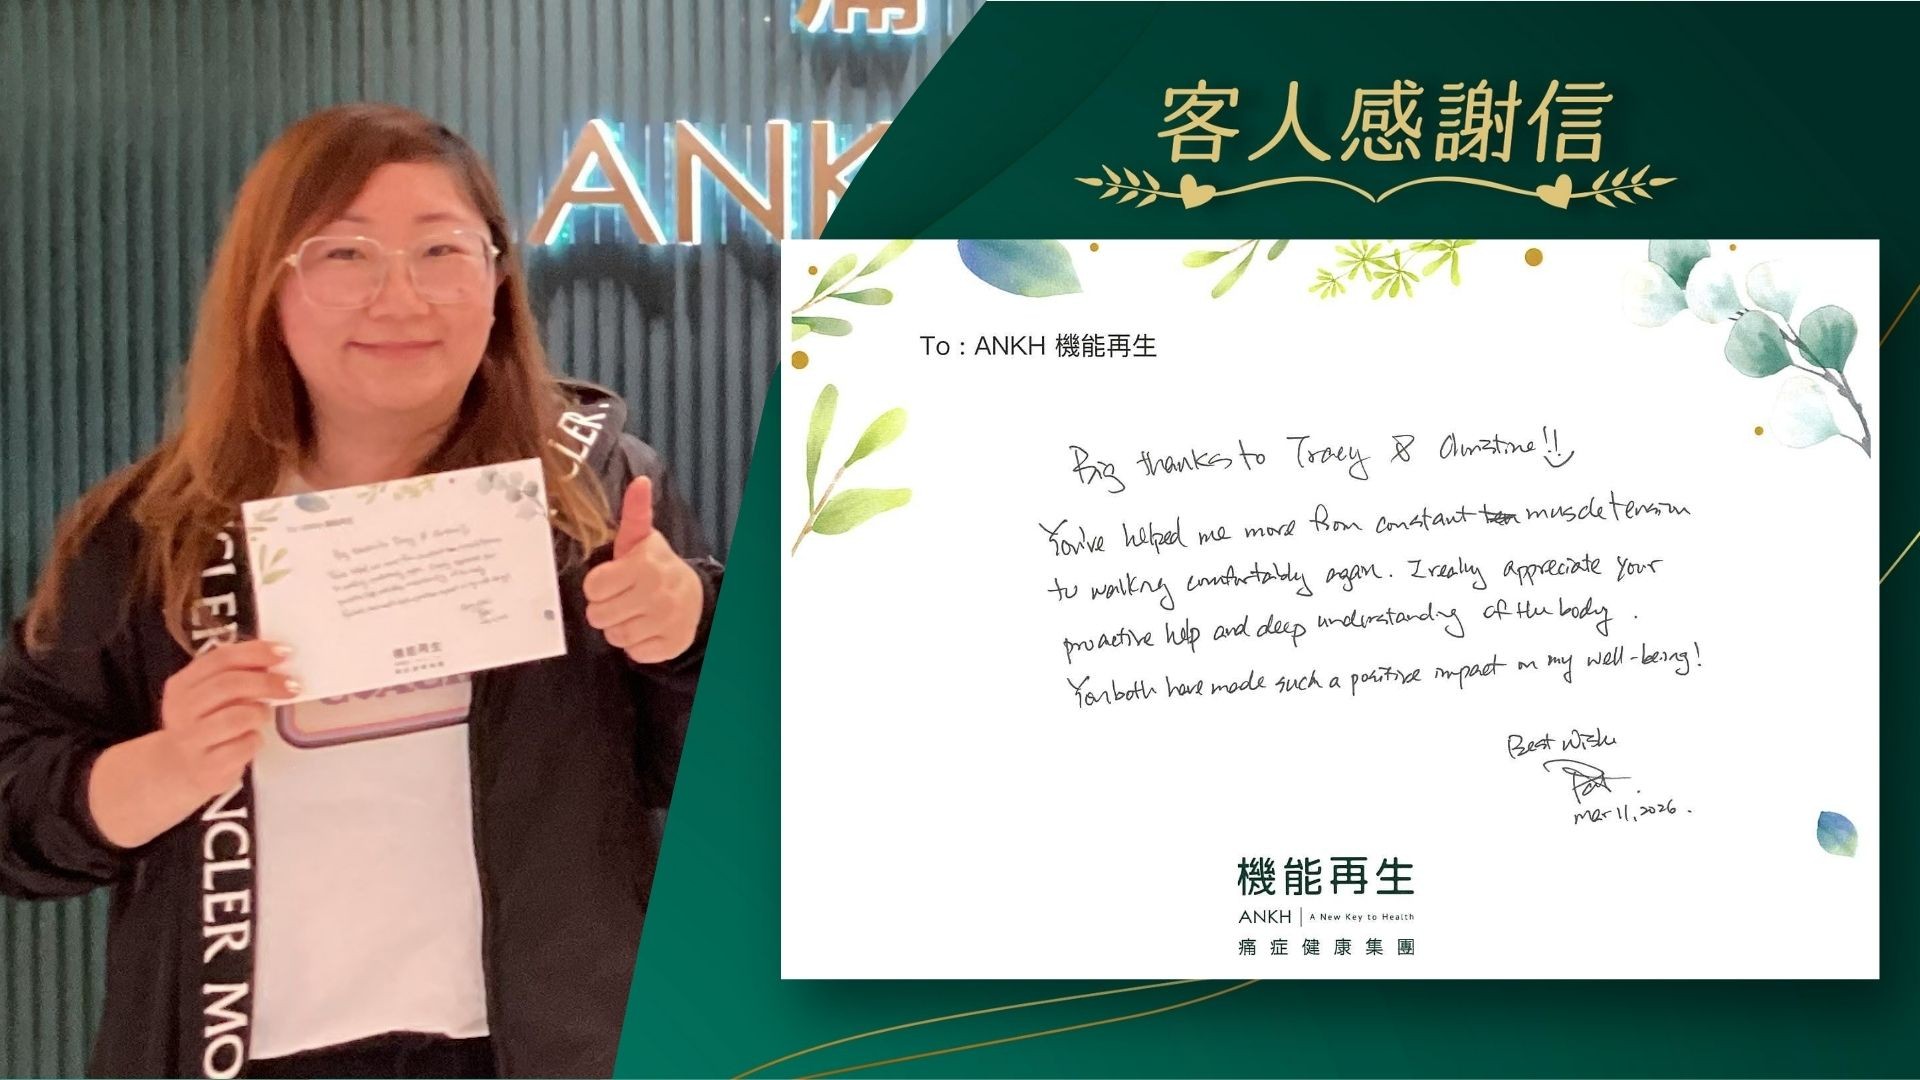 ANK
客人感謝信
To : ANKH 機能再生
Big thanks to Tracy & Christine!!
You've helped me more from constant muscle tension
to walking comfortably again. I really appreciate your
proactive help and deep understanding of the body.
You both have made such a positive impact on my well-being!
Best Wish
Pat
Mar 11, 2026.
機能再生
ANKH | A New Key to Health
痛症健康集團
CLER
CLER
NCLER MO
機能再生